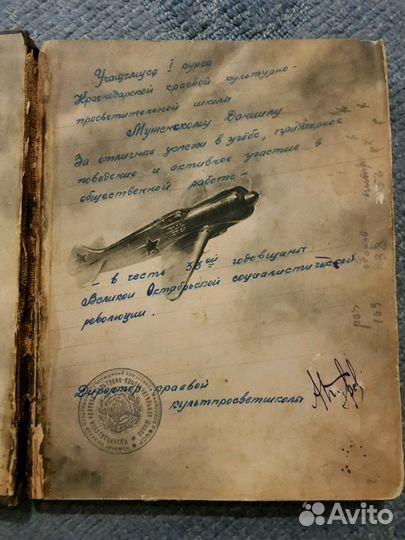 Учащемуся I курса
Краснодарской краевой культурно-
просветительной школы
Мужескому Даниилу
За отличные успехи в учёбе, примерное
поведение и активное участие в
общественной работе -
- в честь 33ей годовщины
Великой Октябрьской социалистической
революции.
Директор краевой
культпросветшколы
165
38
Avito